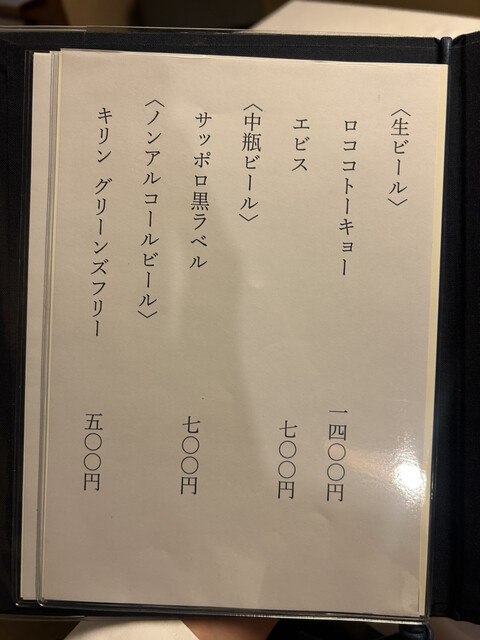 〈生ビール〉
ロココトーキョー 一四〇〇円
エビス 七〇〇円
〈中瓶ビール〉
サッポロ黒ラベル 七〇〇円
〈ノンアルコールビール〉
キリン グリーンズフリー 五〇〇円